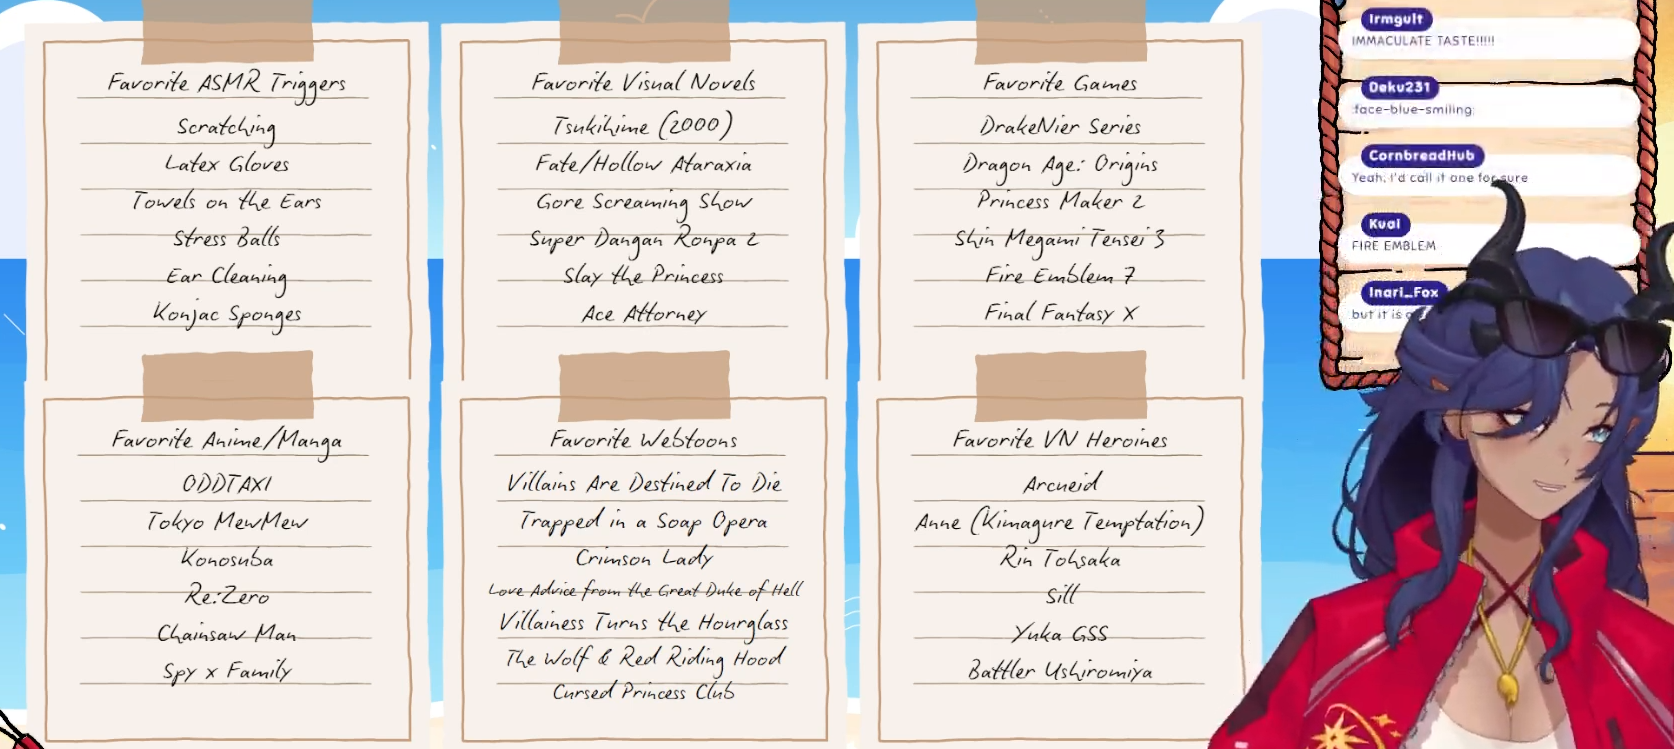 Favorite ASMR Triggers
Scratching
Latex Gloves
Towels on the Ears
Stress Balls
Ear Cleaning
Konjac Sponges
Favorite Visual Novels
Tsukihime (2000)
Fate/Hollow Ataraxia
Gore Screaming Show
Super Dangan Ronpa 2
Slay the Princess
Ace Attorney
Favorite Games
DrakeNier Series
Dragon Age: Origins
Princess Maker 2
Shin Megami Tensei 3
Fire Emblem 7
Final Fantasy X
Favorite Anime/Manga
ODDTAXI
Tokyo MewMew
Konosuba
Re:Zero
Chainsaw Man
Spy x Family
Favorite Webtoons
Villains Are Destined To Die
Trapped in a Soap Opera
Crimson Lady
Love Advice from the Great Duke of Hell
Villainess Turns the Hourglass
The Wolf & Red Riding Hood
Cursed Princess Club
Favorite VN Heroines
Arcueid
Anne (Kimagure Temptation)
Rin Tohsaka
Sill
Yuka GSS
Battler Ushiromiya
Irmgult
IMMACULATE TASTE!!!!!
Deku231
:face-blue-smiling:
CornbreadHub
Yeah, I'd call it one for sure
Kuai
FIRE EMBLEM
Inari_Fox
but it is